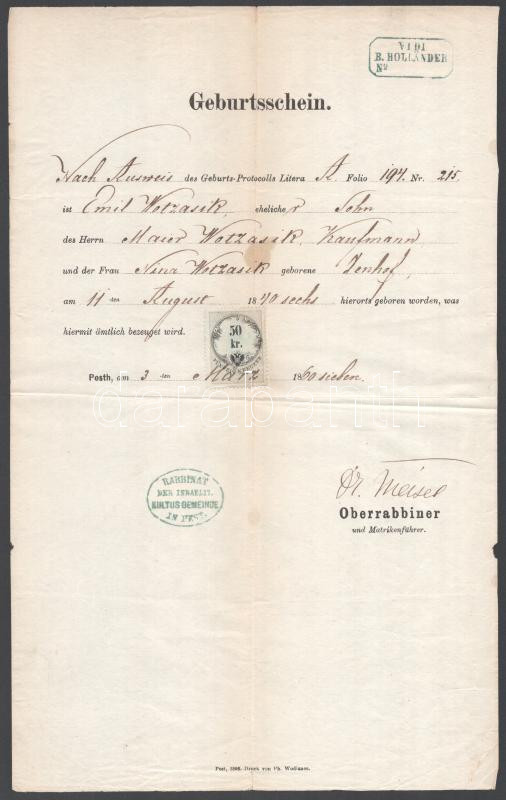 VIDI
B. HOLLÄNDER
Nº
Geburtsschein.
Nach Ausweis des Geburts-Protocolls Litera A. Folio 194. Nr. 215.
ist Emil Wotzasik, eheliche r Sohn
des Herrn Maier Wotzasik, Kaufmann
und der Frau Nina Wotzasik geborene Jenhof,
am 11 ten August 1840sechs hierorts geboren worden, was
hiermit ämtlich bezeuget wird.
50
kr.
Posth, am 3 ten März 1860sieben.
darabanth
RABBINAT
DER ISRAELIT.
KULTUS-GEMEINDE
IN PEST.
Dr. Meisel
Oberrabbiner
und Matrikenführer.
Pest, 1866. Druck von Ph. Wodianer.